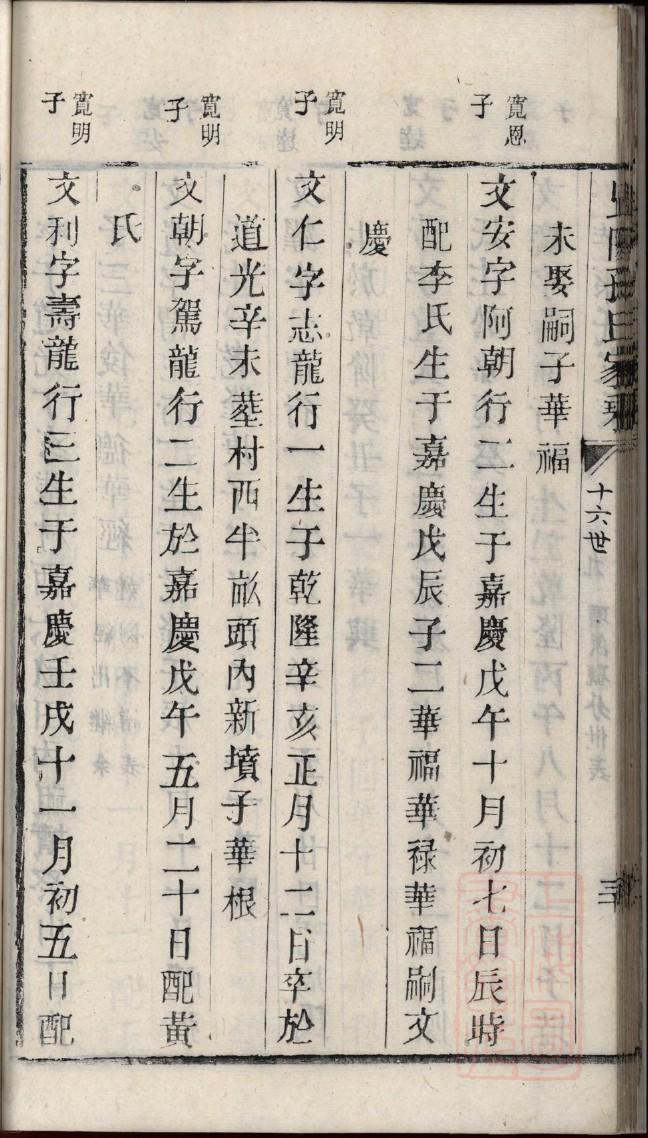 孫氏家乘
十六世
三
未娶嗣子華福
寬恩子
文安字阿朝行二生于嘉慶戊午十月初七日辰時
配李氏生于嘉慶戊辰子二華福華禄華福嗣文
慶
寬明子
文仁字志龍行一生于乾隆辛亥正月十二日卒於
道光辛未塟村西半畝頭內新墳子華根
寬明子
文朝字駕龍行二生於嘉慶戊午五月二十日配黃
氏
寬明子
文利字壽龍行三生于嘉慶壬戌十一月初五日配